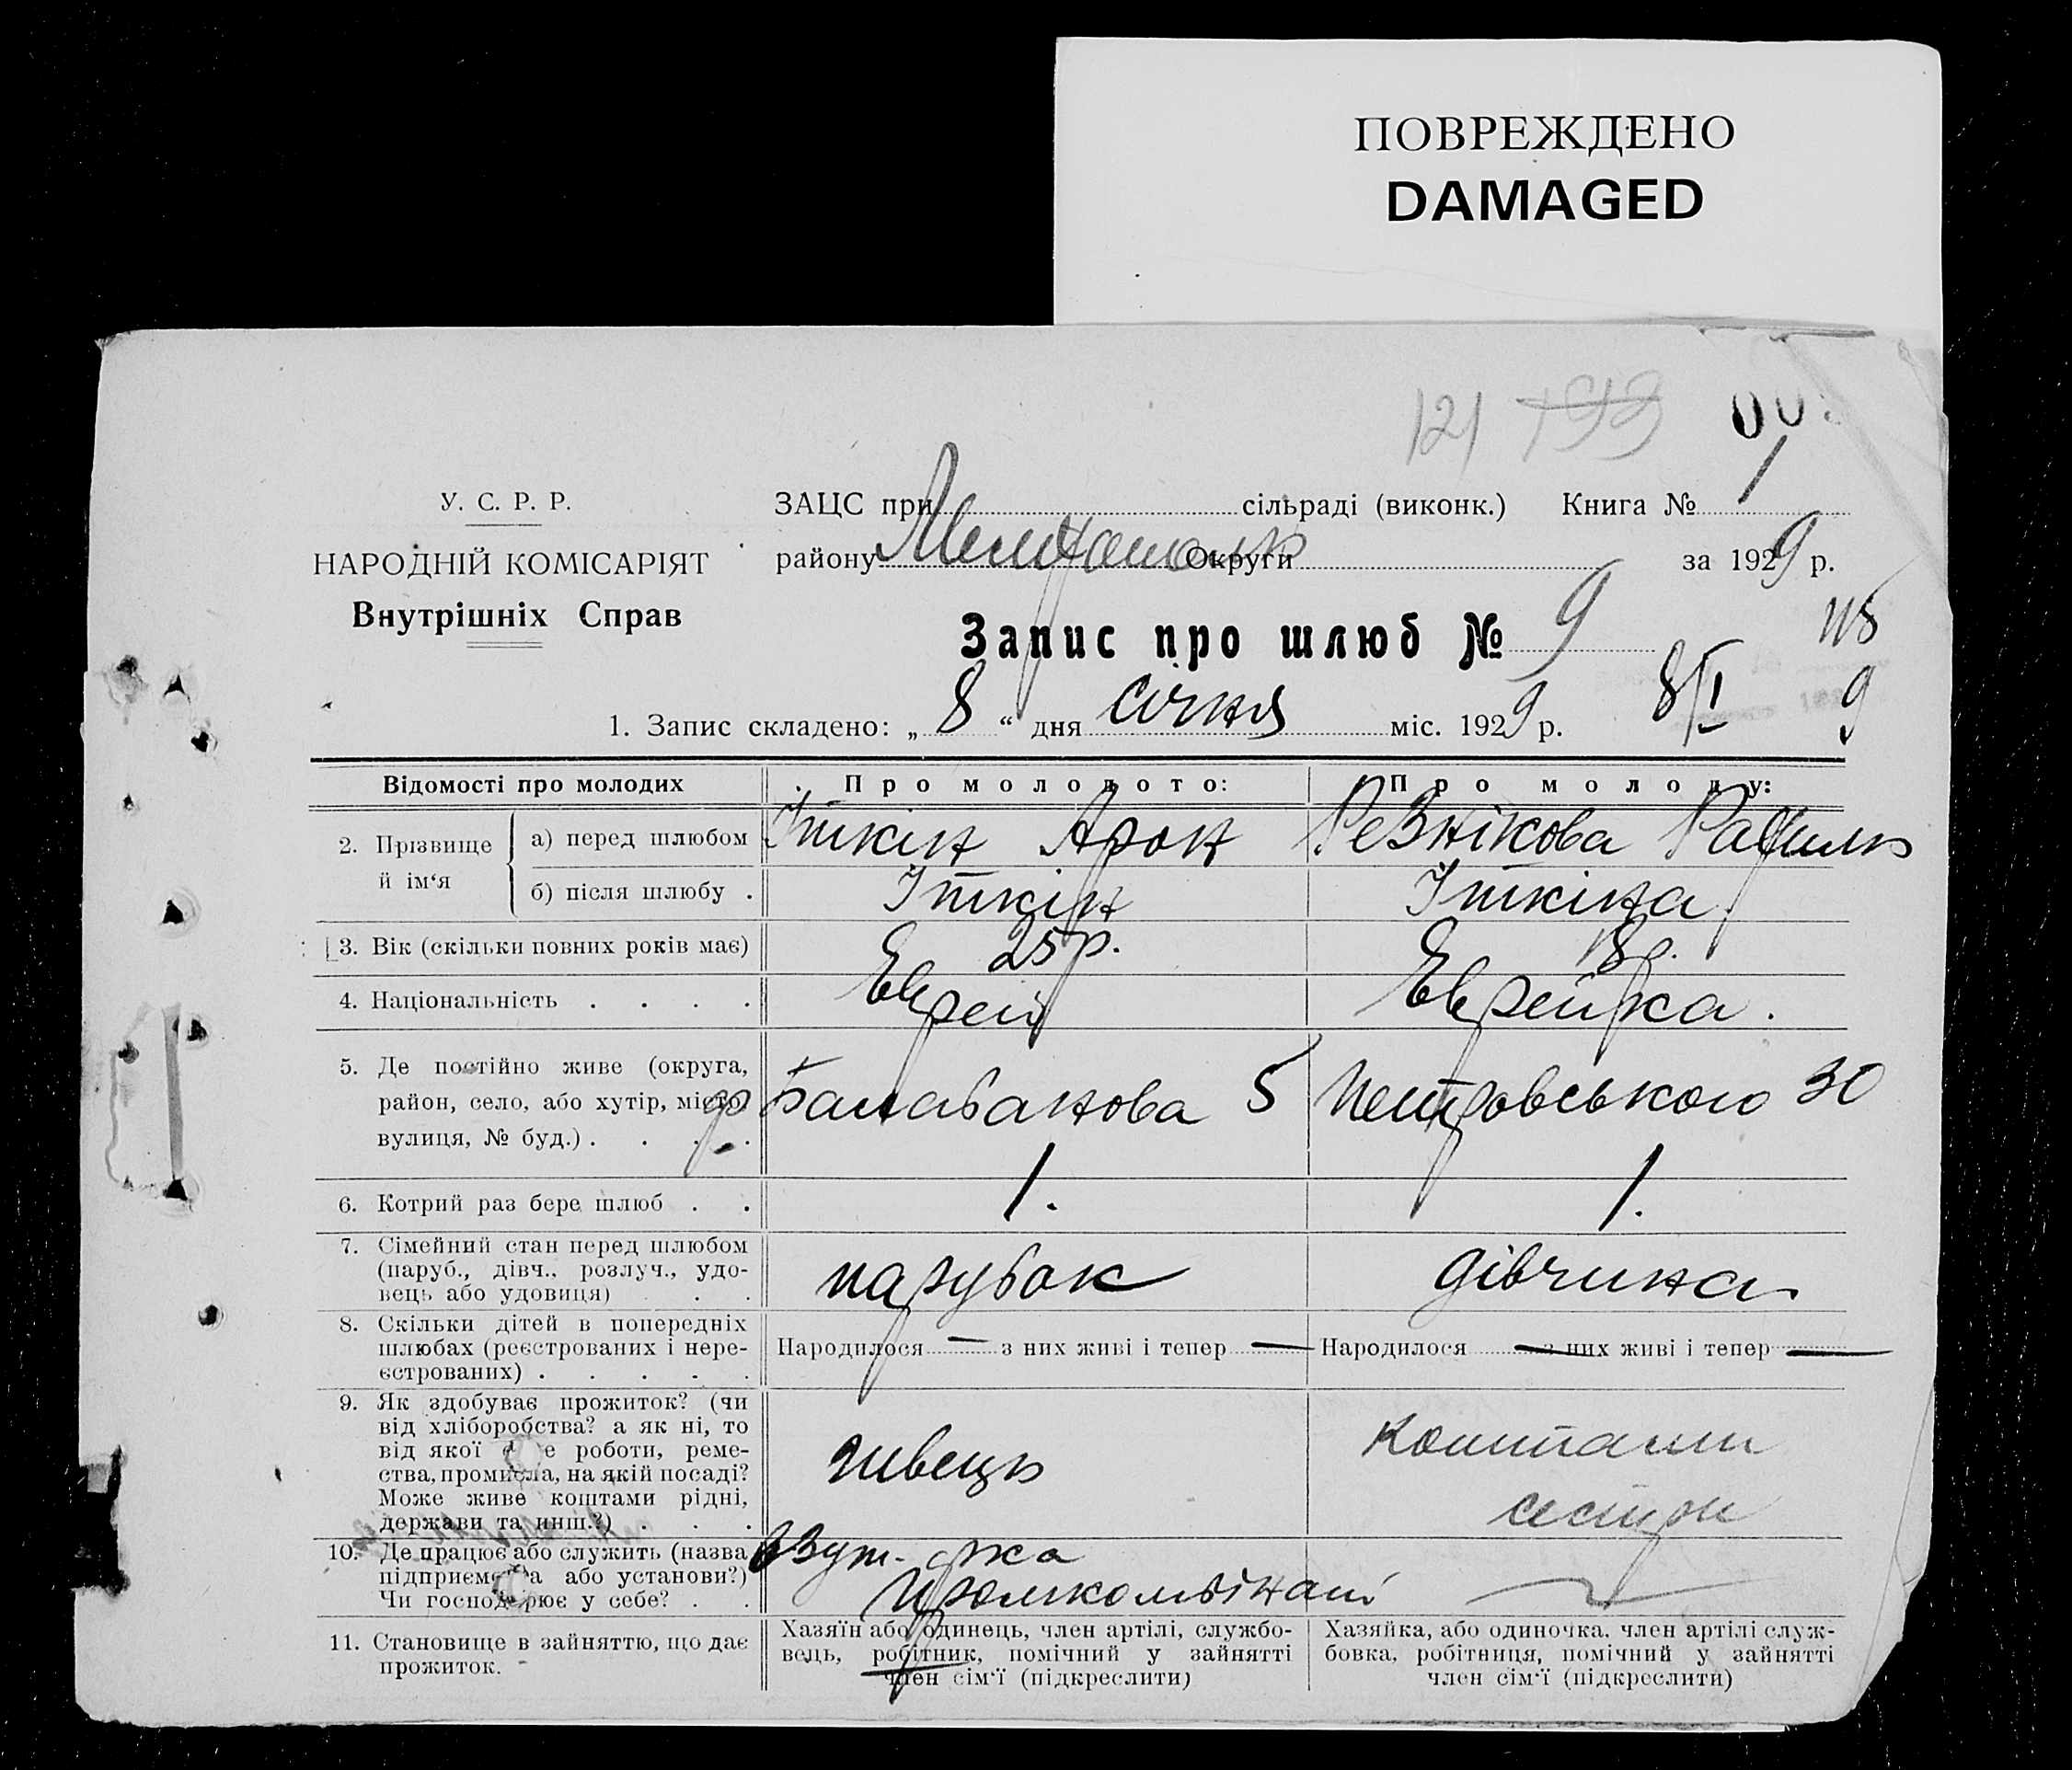 ПОВРЕЖДЕНО
DAMAGED
121 199
У. С. Р. Р.
НАРОДНІЙ КОМІСАРІЯТ
Внутрішніх Справ
ЗАЦС при сільраді (виконк.) Книга № 1
району Округи за 1929 р.
Запис про шлюб № 9
1. Запис складено: „ 8 “ дня січня міс. 1929 р.
8/I 9
Відомості про молодих
Про молодого:
Про молоду:
2. Прізвище й ім‘я
а) перед шлюбом
Іткін Арон
Резнікова Рахиль
б) після шлюбу .
Іткін
Іткіна
3. Вік (скільки повних років має)
25 р.
18 р.
4. Національність . . . .
Еврей
Еврейка.
5. Де постійно живе (округа,
район, село, або хутір, місто,
вулиця, № буд.) . . . .
Балабанова 5
Петровського 30
6. Котрий раз бере шлюб . .
1.
1.
7. Сімейний стан перед шлюбом
(паруб., дівч., розлуч., удо-
вець або удовиця) . .
парубок
дівчина
8. Скільки дітей в попередніх
шлюбах (реєстрованих і нере-
єстрованих) . . . . .
Народилося — з них живі і тепер —
Народилося — з них живі і тепер —
9. Як здобуває прожиток? (чи
від хліборобства? а як ні, то
від якої е роботи, реме-
ства, промисла, на якій посаді?
Може живе коштами рідні,
держави та инш.?) . . .
швець
коштами
сестри
10. Де працює або служить (назва
підприємства або установи?)
Чи господарює у себе? . .
Взут. ф-ка
Промкомбінат
11. Становище в зайняттю, що дає
прожиток.
Хазяїн або одинець, член артілі, службо-
вець, робітник, помічний у зайнятті
член сім‘ї (підкреслити)
Хазяйка, або одиночка, член артілі служ-
бовка, робітниця, помічний у зайнятті
член сім‘ї (підкреслити)